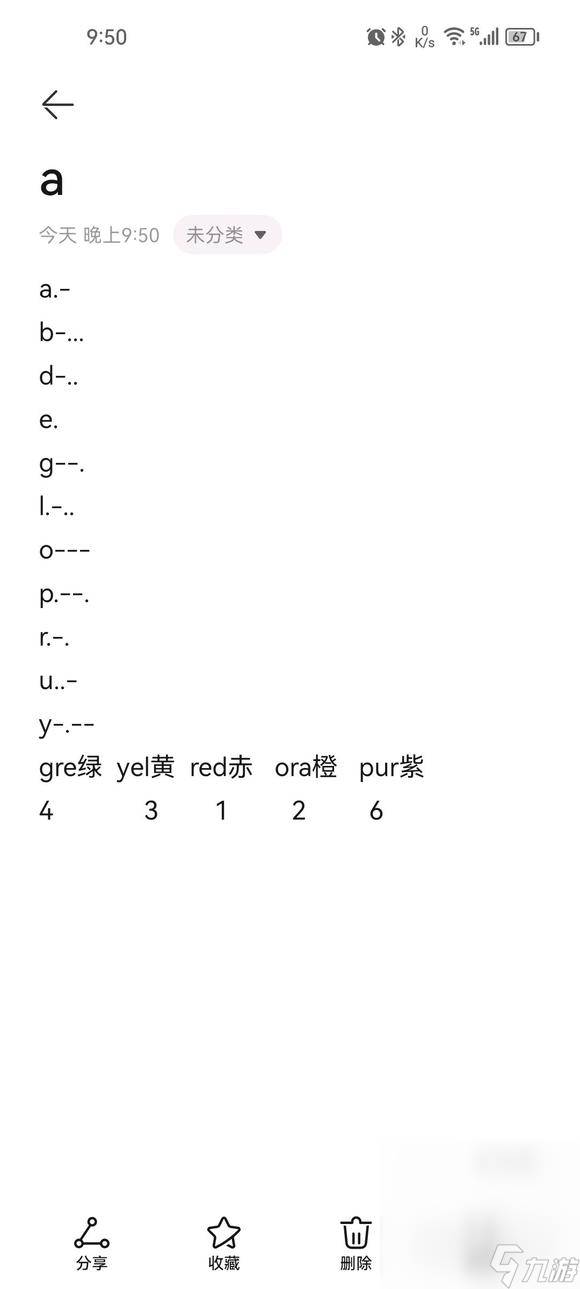 9:50 0 K/s 5G 67
a
今天 晚上9:50 未分类
a.-
b-...
d-..
e.
g--.
l.-..
o---
p.--.
r.-.
u..-
y-.--
gre绿 yel黄 red赤 ora橙 pur紫
4 3 1 2 6
分享 收藏 删除
九游